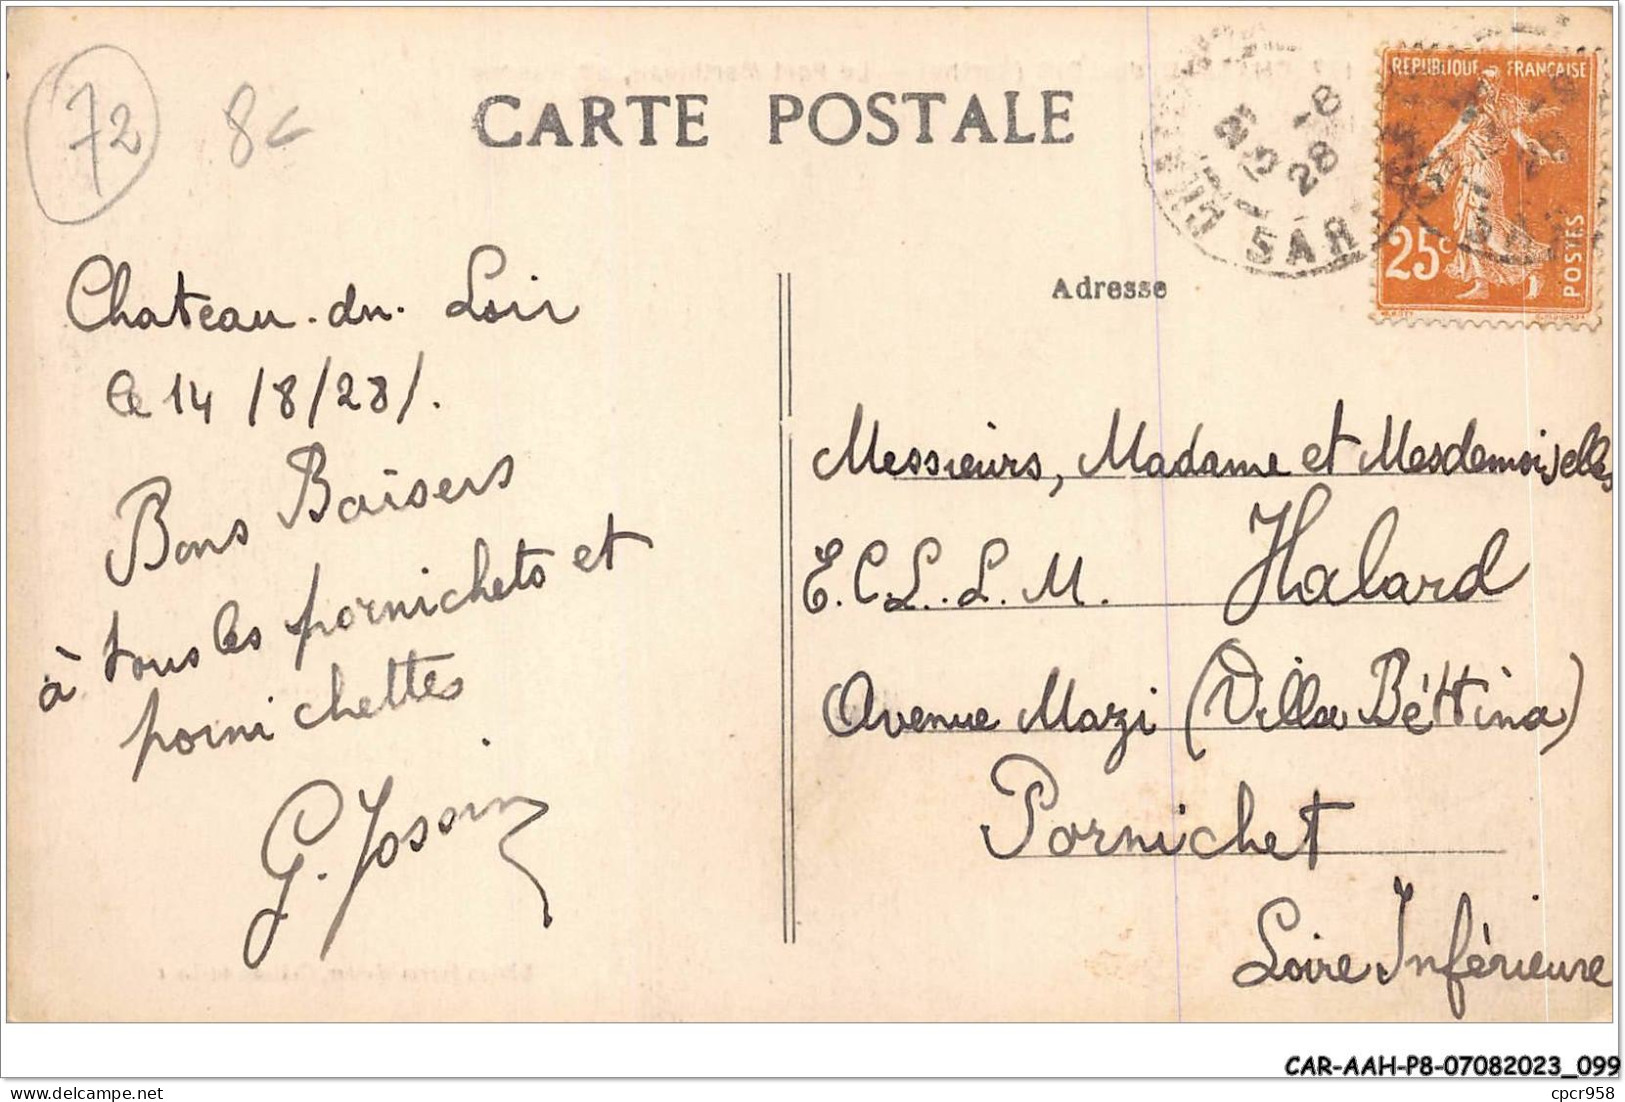 72
8€
CARTE POSTALE
REPUBLIQUE FRANÇAISE
25c
POSTES
15
-8
28
SAR
Adresse
Chateau-du-Loir
le 14/8/28/.
Bons Baisers
à tous les pornichets et
pornichettes
Messieurs, Madame et Mesdemoiselles
E.C.L.L.M. Halard
Avenue Mazi (Villa Béttina)
Pornichet
Loire Inférieure
CAR-AAH-P8-07082023_099
cpcr958